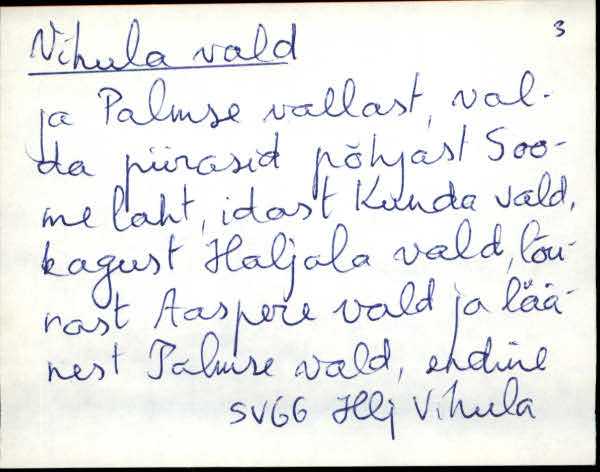 3
Vihula vald
ja Palmse vallast, val-
da piirasid põhjast Soo-
me laht, idast Kunda vald,
kagust Haljala vald, lõu-
nast Aaspere vald ja lää-
nest Palmse vald, endine
SVGG Hlj Vihula